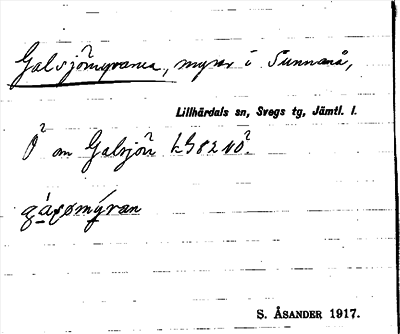 Galsjömyrarna, myrar i Sunnanå,
Lillhärdals sn, Svegs tg, Jämtl. l.
Ö om Galsjön LG82NÖ.
S. ÅSANDER 1917.